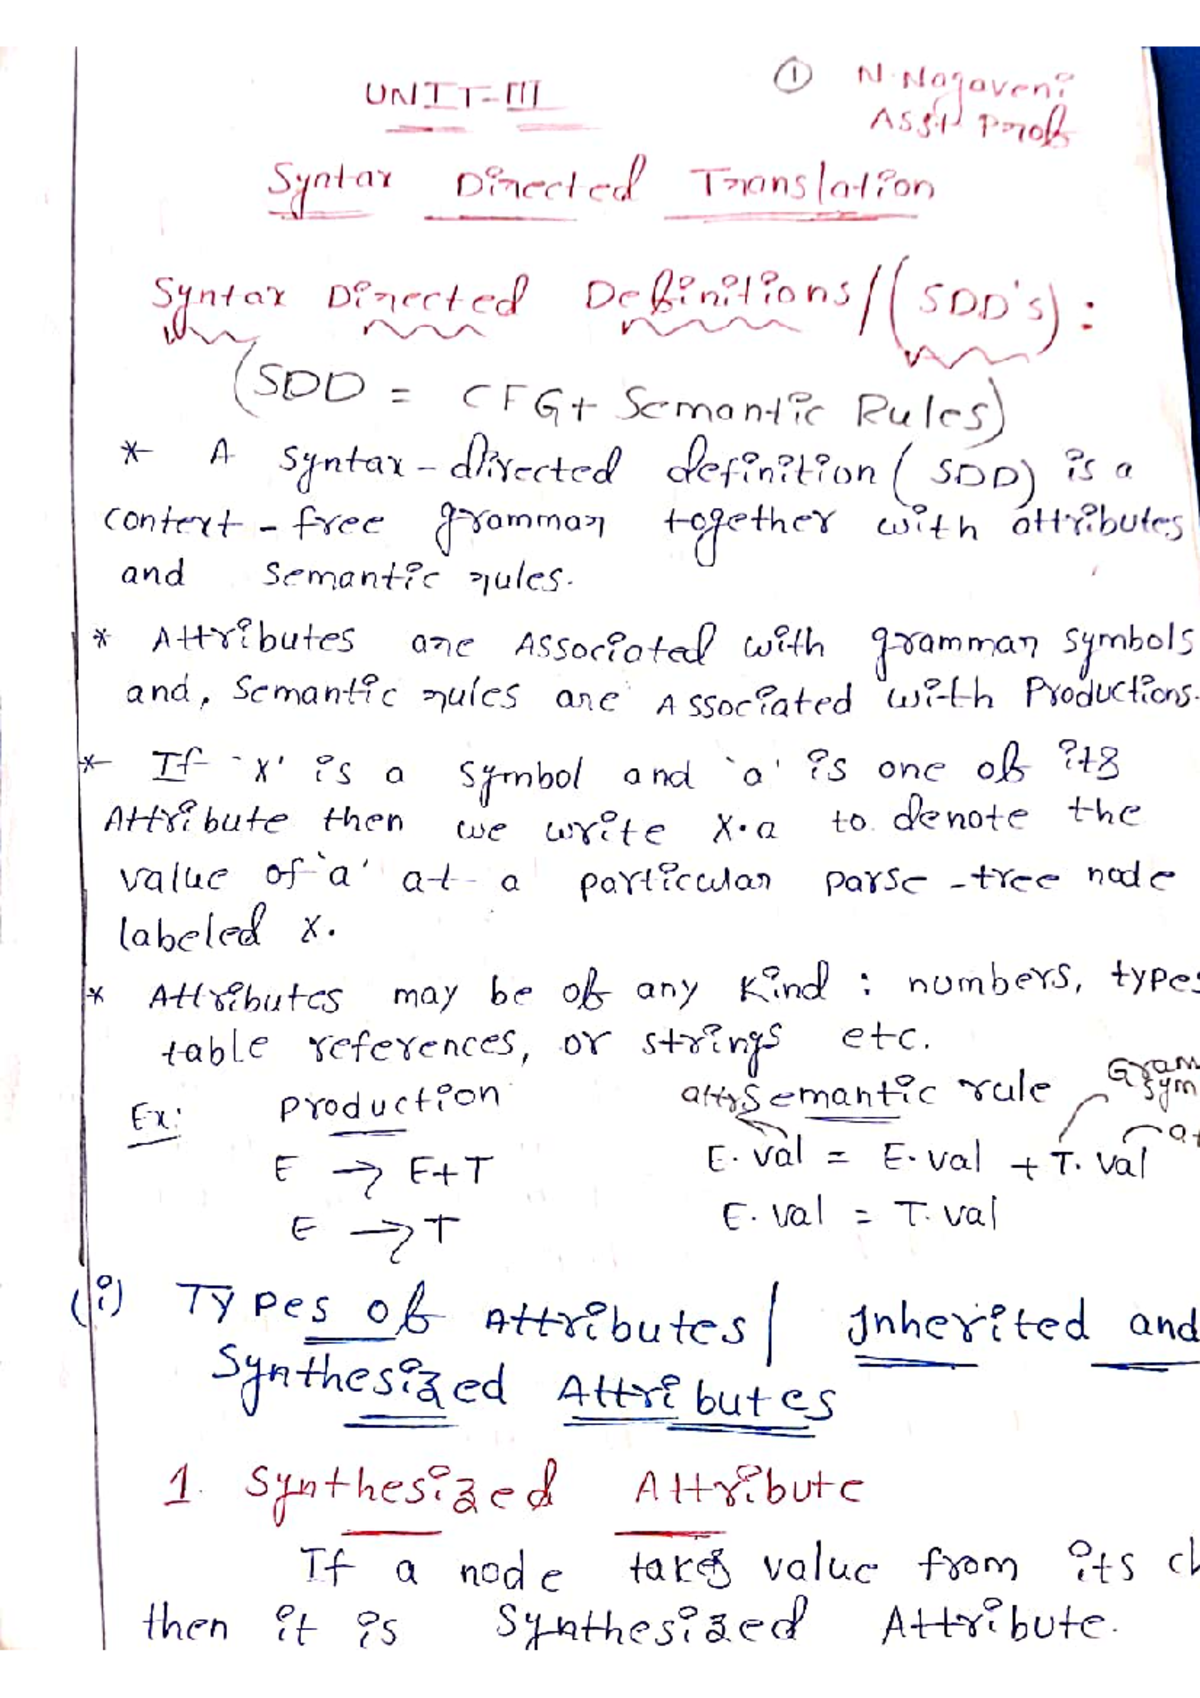 UNIT-III
① N.Nagaveni
Asst Prof
Syntax Directed Translation
Syntax Directed Definitions/(SDD's):
(SDD = CFG+ Semantic Rules)
* A syntax-directed definition (SDD) is a
context-free grammar together with attributes
and semantic rules.
* Attributes are Associated with grammar symbols
and, Semantic rules are Associated with Productions.
* If `X' is a symbol and `a' is one of its
Attribute then we write X.a to denote the
value of `a' at a particular parse-tree node
labeled X.
* Attributes may be of any kind : numbers, types
table references, or strings etc.
Ex: Production attr Semantic rule Gram
sym
E → E+T E.val = E.val + T.val at
E → T E.val = T.val
(i) Types of Attributes/ Inherited and
Synthesized Attributes
1. Synthesized Attribute
If a node takes value from its ch
then it is Synthesized Attribute.